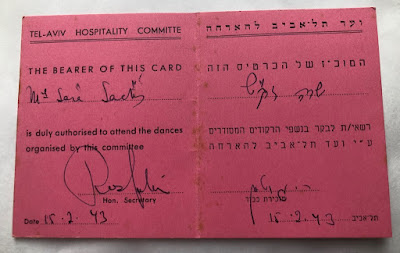 TEL-AVIV HOSPITALITY COMMITTE
THE BEARER OF THIS CARD
is duly authorised to attend the dances
organised by this committee
Hon. Secretary
Date 15.2.43
ועד תל-אביב להארחה
המוכ"ז של הכרטיס הזה
שרה
רשאי/ת לבקר בנשפי הרקודים המסודרים
ע"י ועד תל-אביב להארחה
מזכירת כבוד
תל-אביב 15.2.43